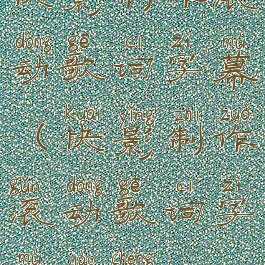 dòng gē cí zì mù
动歌词字幕
kuài yǐng zhì zuò
（快影制作
gǔn dòng gē cí zì
滚动歌词字